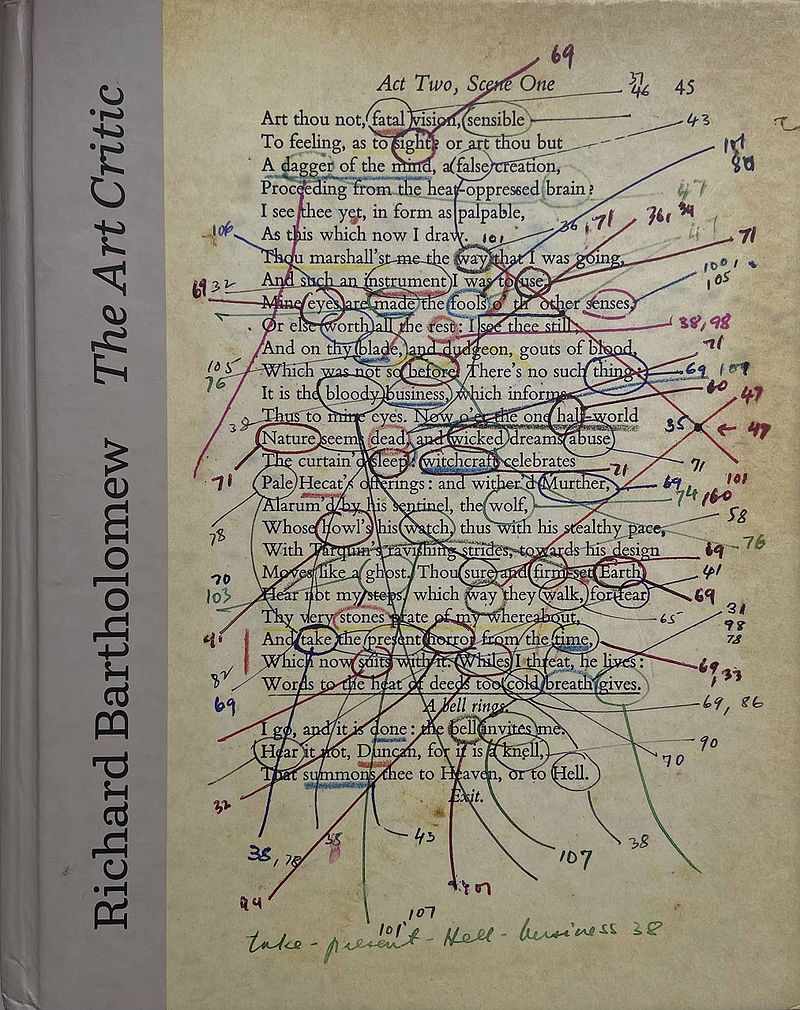 Richard Bartholomew The Art Critic
69
Act Two, Scene One
37
46
45
Art thou not, fatal vision, sensible
43
To feeling, as to sight? or art thou but
101
A dagger of the mind, a false creation,
80
Proceeding from the heat-oppressed brain?
47
I see thee yet, in form as palpable,
36, 71
36, 34
As this which now I draw.
101
47
71
106
Thou marshall'st me the way that I was going,
100
And such an instrument I was to use,
105
69 32
Mine eyes are made the fools o' th' other senses,
Or else worth all the rest: I see thee still,
38, 98
And on thy blade, and dudgeon, gouts of blood,
71
105
Which was not so before. There's no such thing:
69 107
76
It is the bloody business, which informs
60
47
Thus to mine eyes. Now o'er the one half-world
38
35
47
Nature seems dead, and wicked dreams abuse
The curtain'd sleep: witchcraft celebrates
71
71
101
71
Pale Hecat's offerings: and wither'd Murther,
69
Alarum'd by his sentinel, the wolf,
74
160
78
Whose howl's his watch, thus with his stealthy pace,
58
With Tarquin's ravishing strides, towards his design
69
76
70
Moves like a ghost. Thou sure and firm-set Earth
41
103
Hear not my steps, which way they walk, for fear
69
Thy very stones prate of my whereabout,
65
31
98
And take the present horror from the time,
78
Which now suits with it. Whiles I threat, he lives:
69, 33
82
Words to the heat of deeds too cold breath gives.
69
69, 86
A bell rings.
I go, and it is done: the bell invites me.
Hear it not, Duncan, for it is a knell,
90
70
That summons thee to Heaven, or to Hell.
32
Exit.
38, 78
38
43
107
38
94
101
107
take - present - Hell - business 38